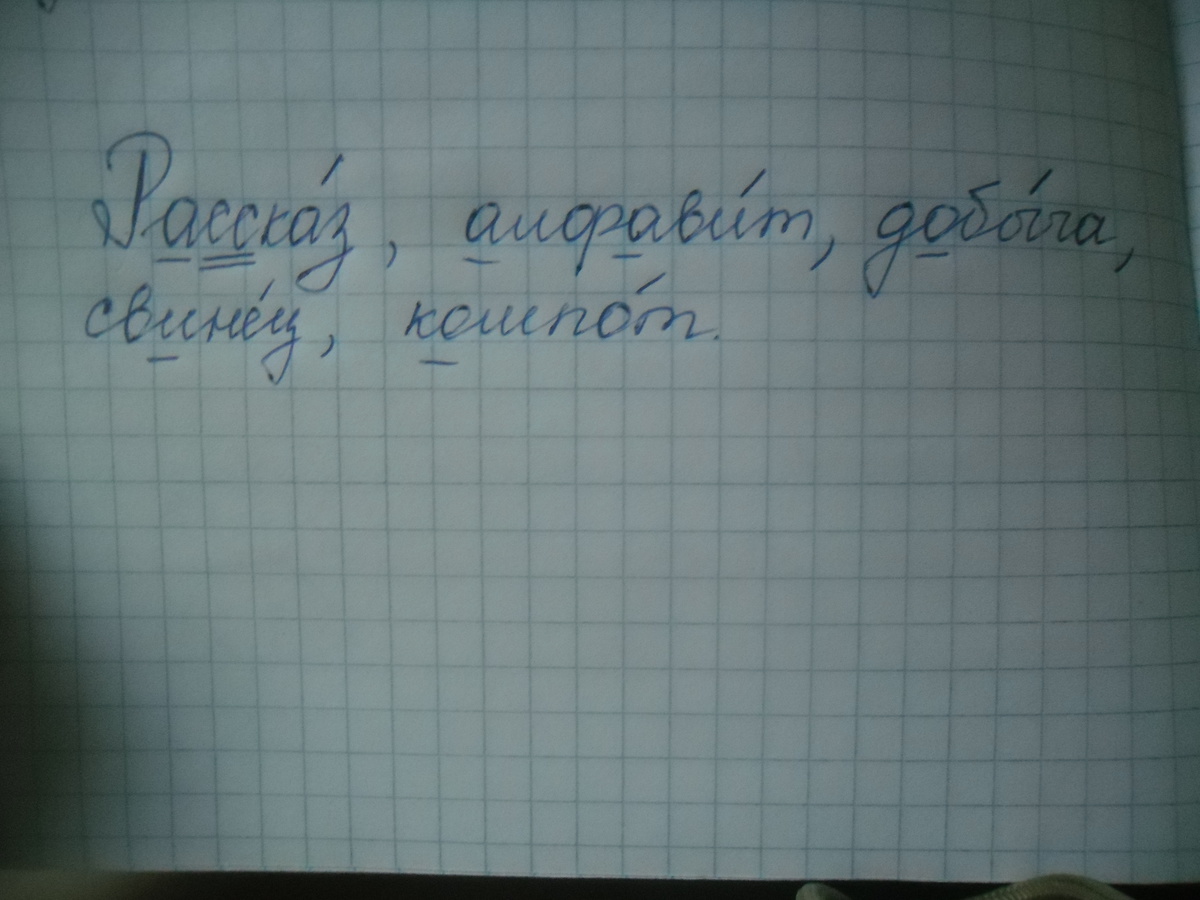 Расска́з, алфави́т, добы́ча,
свине́ц, компо́т.